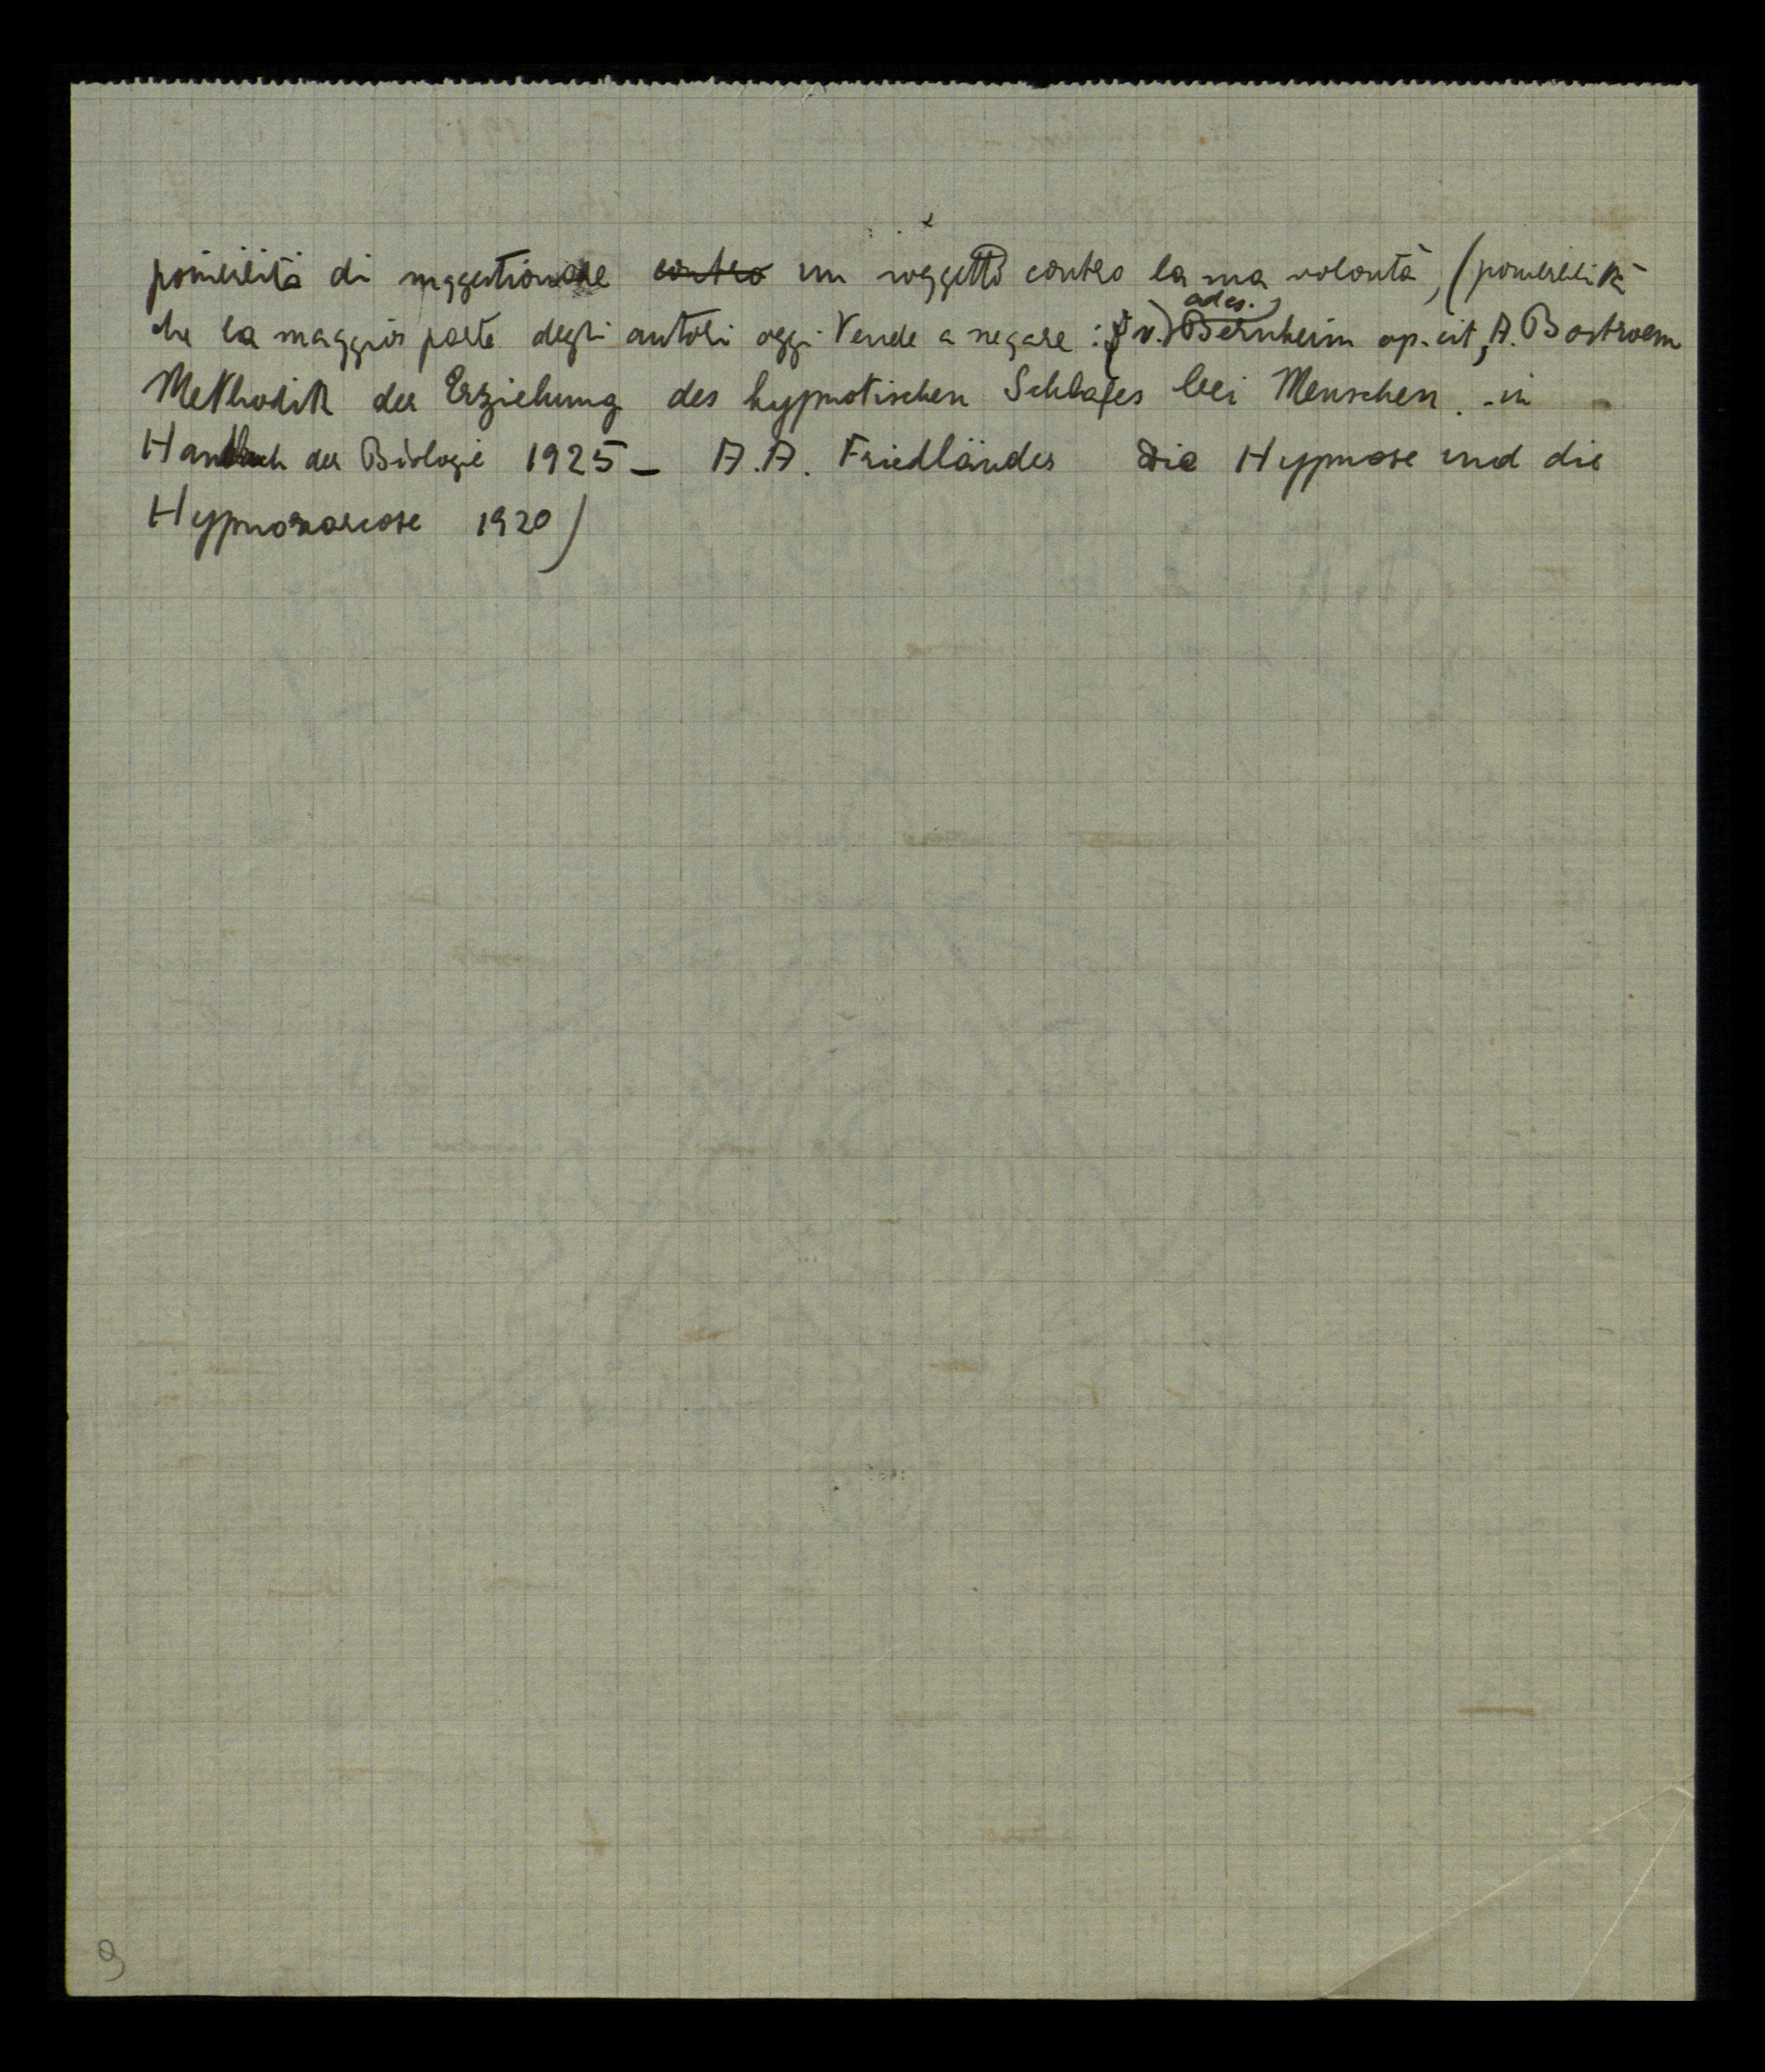 possibilità di suggestionare contro un soggetto contro la sua volontà, (possibilità
che la maggior parte degli autori oggi tende a negare : (v. ad es. Bernheim op. cit, A. Bostroem
Methodik der Erziehung des hypnotischen Schlafes bei Menschen. - in
Handbuch der Biologie 1925 – A. A. Friedländer Die Hypnose und die
Hypnonarcose 1920)
9